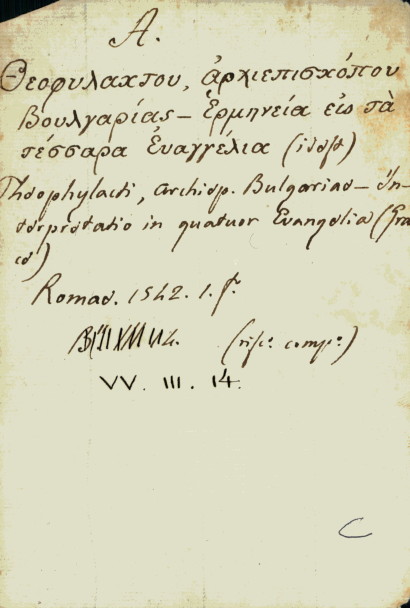 A.
Θεοφυλάκτου, ἀρχιεπισκόπου
Βουλγαρίας – Ἑρμηνεία εἰς τὰ
τέσσαρα Εὐαγγέλια
Theophylacti, archiep. Bulgariae – In-
terpretatio in quatuor Evangelia (Gra
ce)
Romae. 1542. 1. f.
VV. III. 14.
C